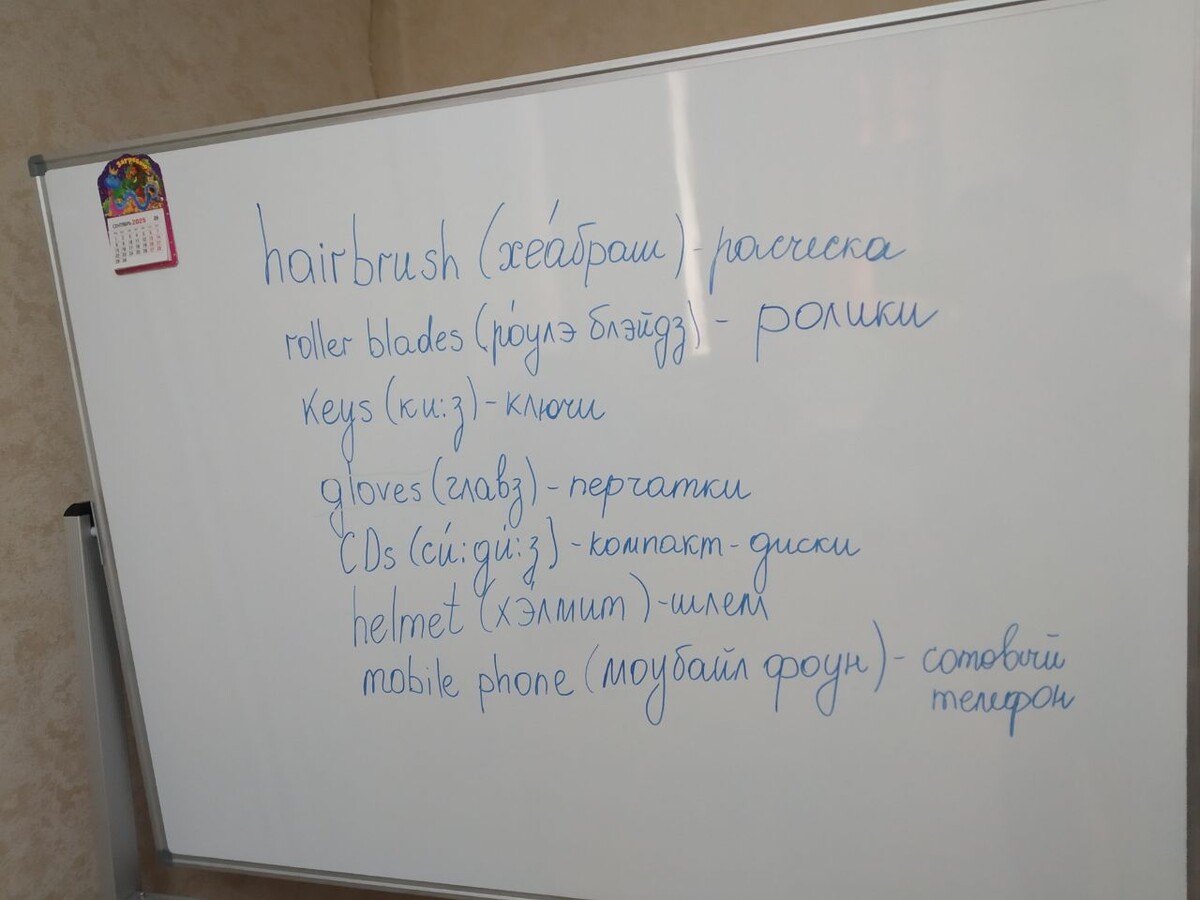 СЕНТЯБРЬ 2025
hairbrush (хеа́браш) - расческа
roller blades (ро́улэ блэйдз) - ролики
keys (ки:з) - ключи
gloves (главз) - перчатки
CDs (си́:ди́:з) - компакт-диски
helmet (хэ́лмит) - шлем
mobile phone (моубайл фоун) - сотовый
телефон